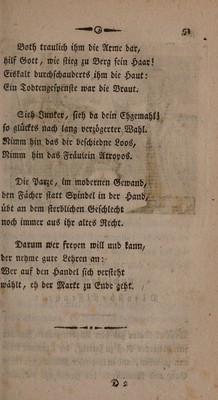 51
Both traulich ihm die Arme dar,
hilf Gott, wie stieg zu Berg sein Haar!
Eiskalt durchschauderts ihm die Haut:
Ein Todtengespenste war die Braut.
Sieh Junker, sieh da dein Ehgemahl!
so glückts nach lang verzögerter Wahl.
Nimm hin das dir beschiedne Loos,
Nimm hin das Fräulein Atropos.
Die Parze, im modernen Gewand,
den Fächer statt Spindel in der Hand,
übt an dem sterblichen Geschlecht
noch immer aus ihr altes Recht.
Darum wer freyen will und kann,
der nehme gute Lehren an:
Wer auf den Handel sich versteht
wählt, eh der Markt zu Ende geht.
D 2